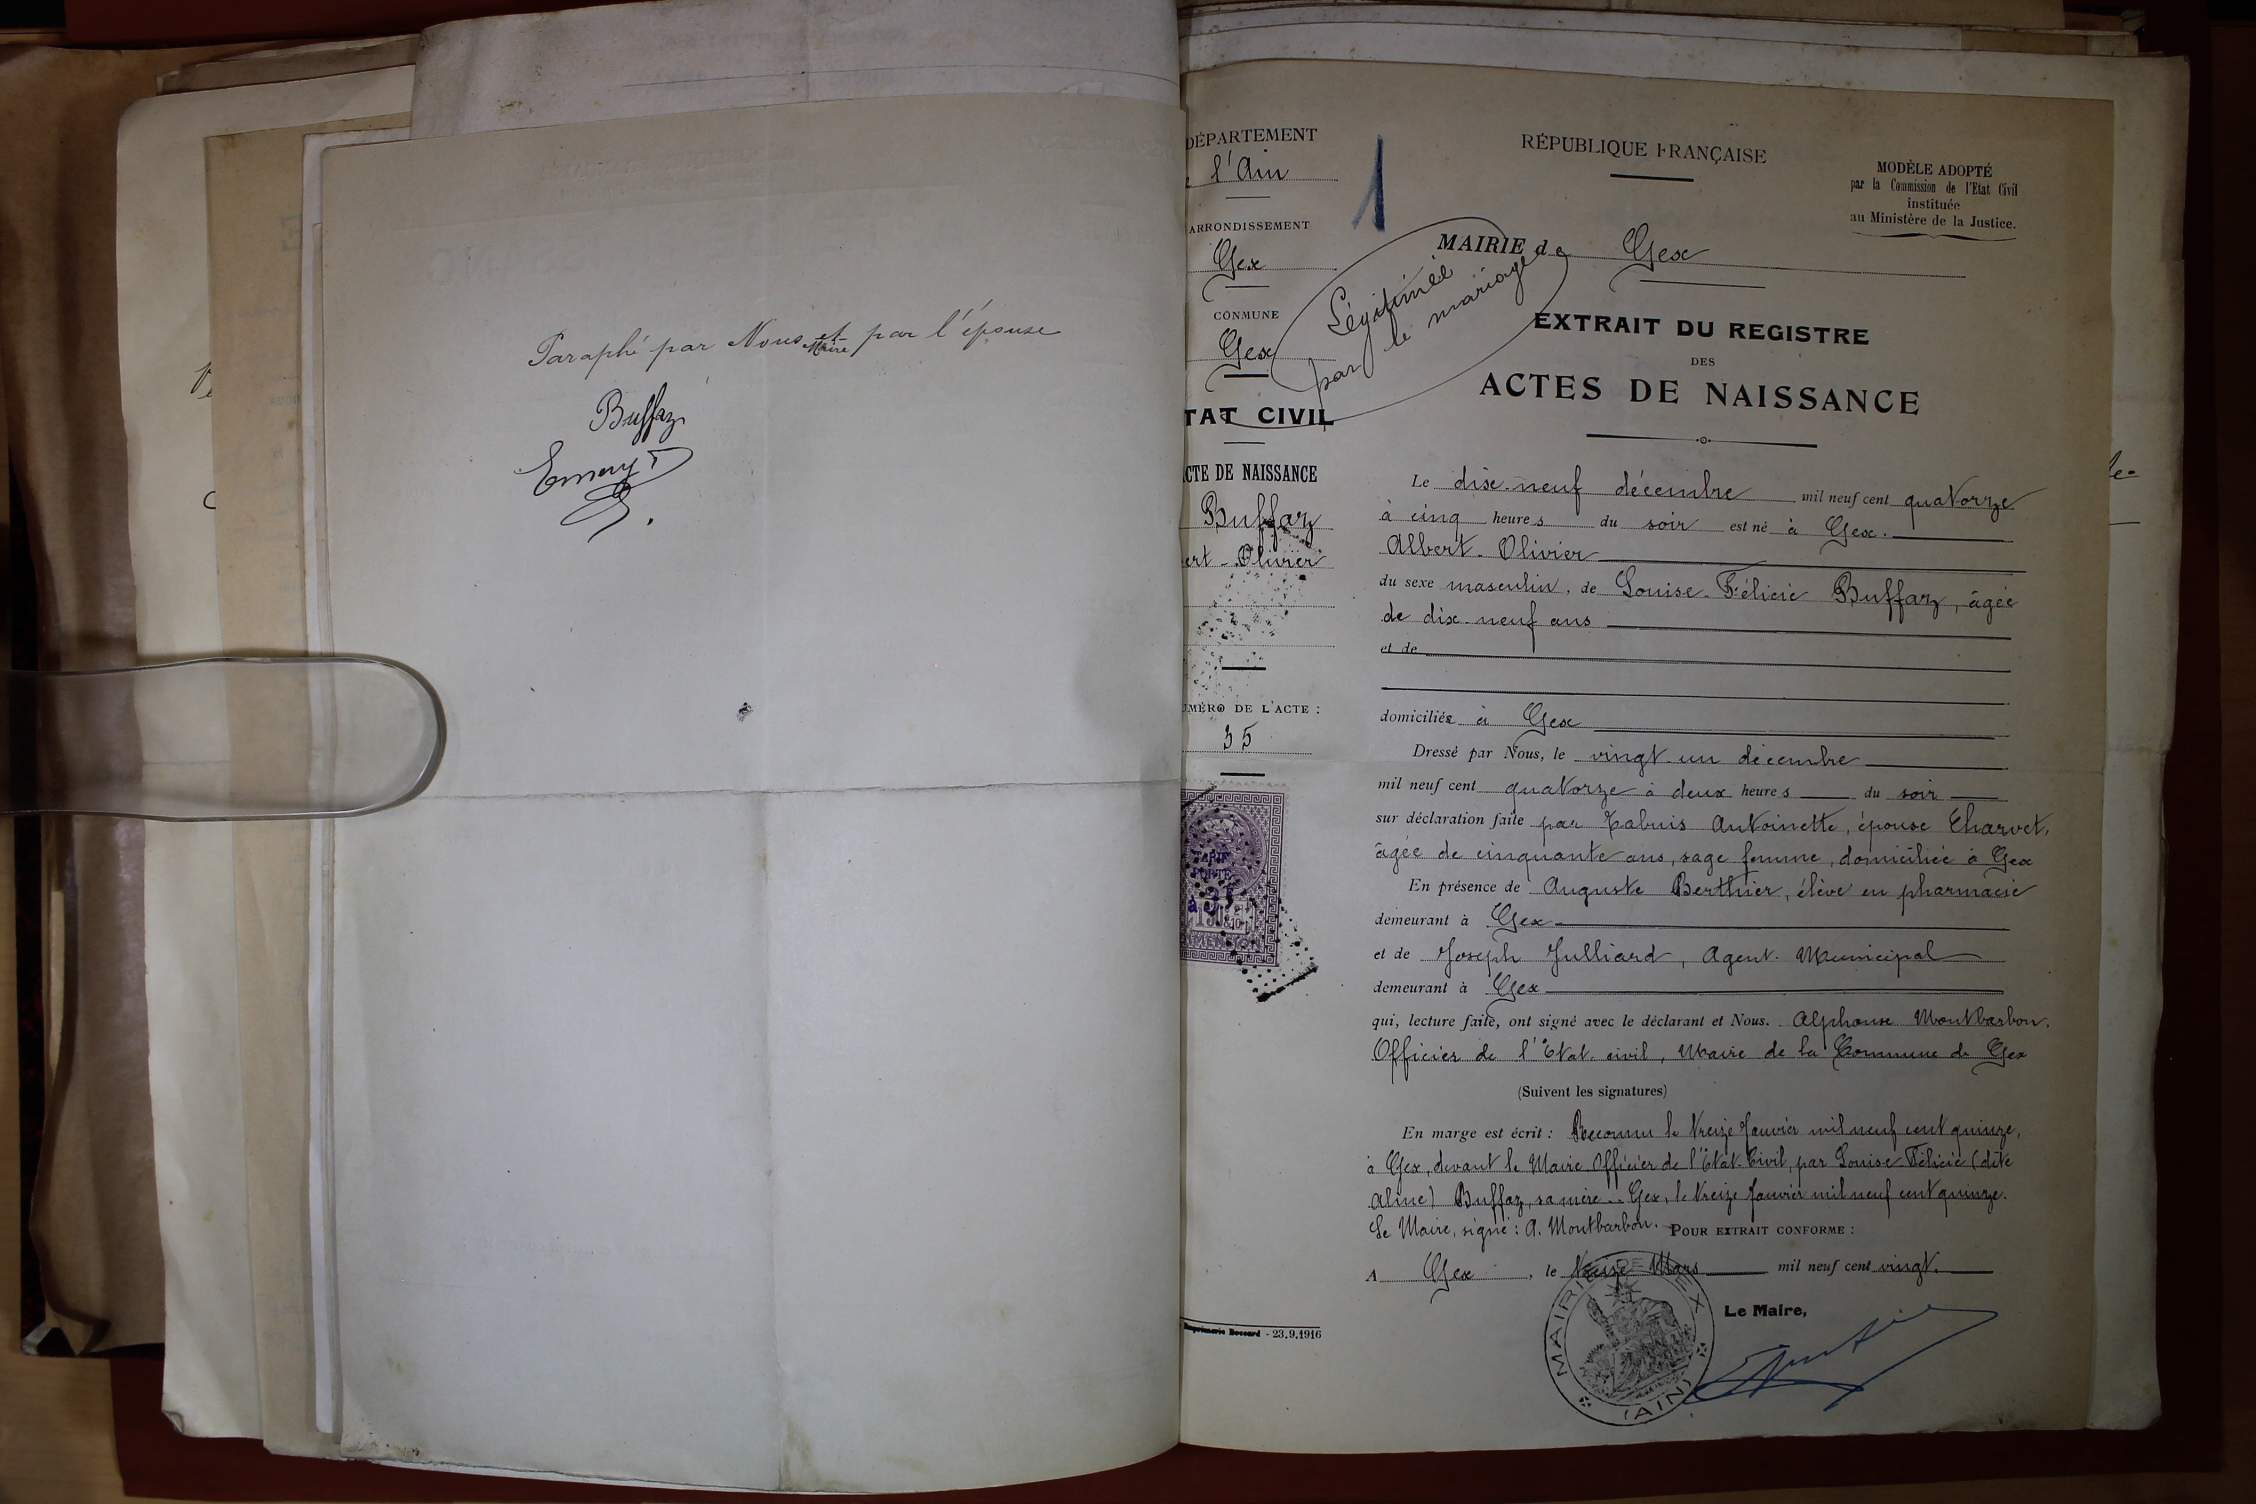 Paraphé par Nous et par l'épouse
Maire
Buffaz
Emery
DÉPARTEMENT
l'Ain
ARRONDISSEMENT
Gex
COMMUNE
Gex
TAT CIVIL
CTE DE NAISSANCE
Buffaz
ert-Olivier
MÉRO DE L'ACTE :
35
Imprimerie Bossard - 23.9.1916
1
RÉPUBLIQUE FRANÇAISE
MODÈLE ADOPTÉ
par la Commission de l'Etat Civil
instituée
au Ministère de la Justice.
MAIRIE de Gex
Légitimée
par le mariage
EXTRAIT DU REGISTRE
DES
ACTES DE NAISSANCE
Le dix-neuf décembre mil neuf cent quatorze
à cinq heures du soir est né à Gex.
Albert-Olivier
du sexe masculin, de Louise-Félicie Buffaz, âgée
de dix-neuf ans
et de
domiciliée à Gex
Dressé par Nous, le vingt-un décembre
mil neuf cent quatorze à deux heures du soir
sur déclaration faite par Tabuis Antoinette, épouse Charvet,
âgée de cinquante ans, sage femme, domiciliée à Gex
En présence de Auguste Berthier, élève en pharmacie
demeurant à Gex
et de Joseph Julliard, Agent Municipal
demeurant à Gex
qui, lecture faite, ont signé avec le déclarant et Nous. Alphonse Montbarbon.
Officier de l'Etat-civil, Maire de la Commune de Gex
(Suivent les signatures)
En marge est écrit : Reconnu le treize Janvier mil neuf cent quinze,
à Gex, devant le Maire Officier de l'Etat-Civil, par Louise-Félicie (dite
Aline) Buffaz, sa mère.. Gex, le treize Janvier mil neuf cent quinze.
Le Maire, signé : A. Montbarbon. POUR EXTRAIT CONFORME :
A Gex, le treize Mars mil neuf cent vingt.
Le Maire,
MAIRIE DE GEX
(AIN)